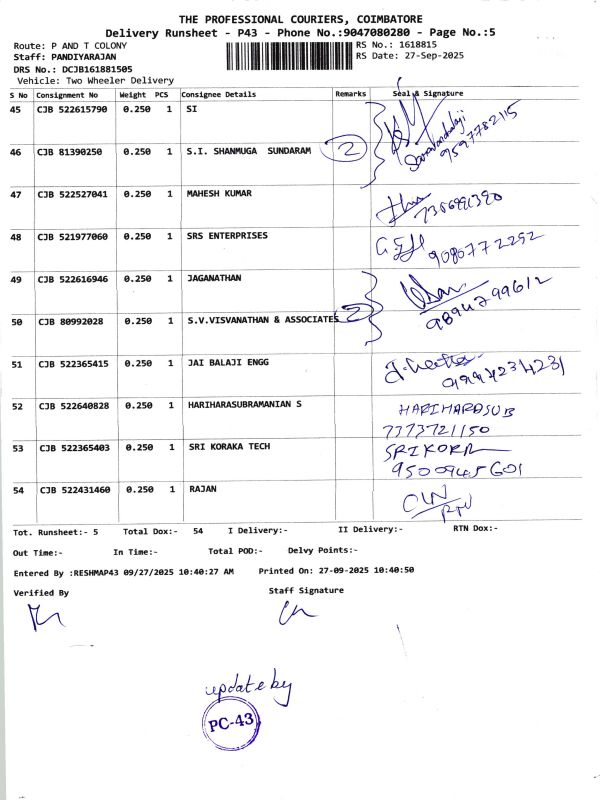 THE PROFESSIONAL COURIERS, COIMBATORE
Delivery Runsheet - P43 - Phone No.:9047080280 - Page No.:5
Route: P AND T COLONY
Staff: PANDIYARAJAN
DRS No.: DCJB161881505
Vehicle: Two Wheeler Delivery
RS No.: 1618815
RS Date: 27-Sep-2025
S No Consignment No Weight PCS Consignee Details Remarks Seal & Signature
45 CJB 522615790 0.250 1 SI 9597782115
46 CJB 81390250 0.250 1 S.I. SHANMUGA SUNDARAM 2
47 CJB 522527041 0.250 1 MAHESH KUMAR
48 CJB 521977060 0.250 1 SRS ENTERPRISES 9080772292
49 CJB 522616946 0.250 1 JAGANATHAN 9894299612
50 CJB 80992028 0.250 1 S.V.VISVANATHAN & ASSOCIATES 2
51 CJB 522365415 0.250 1 JAI BALAJI ENGG 9994234231
52 CJB 522640828 0.250 1 HARIHARASUBRAMANIAN S HARIHARASUB
7373721150
53 CJB 522365403 0.250 1 SRI KORAKA TECH SRIKORA
9500945601
54 CJB 522431460 0.250 1 RAJAN
Tot. Runsheet:- 5 Total Dox:- 54 I Delivery:- II Delivery:- RTN Dox:-
Out Time:- In Time:- Total POD:- Delvy Points:-
Entered By :RESHMAP43 09/27/2025 10:40:27 AM Printed On: 27-09-2025 10:40:50
Verified By Staff Signature
update by
PC-43